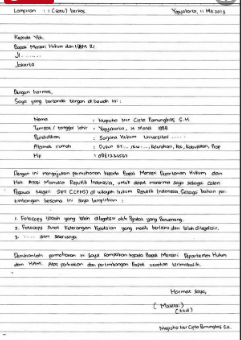 Lampiran : 1 (satu) berkas Yogyakarta, 11 Mei 2013
Kepada Yth.
Bapak Menteri Hukum dan HAM RI
Jl. ........
Jakarta
Dengan hormat,
Saya yang bertanda tangan di bawah ini :
Nama : Nugroho Nur Cipto Pamungkas, S.H.
Tempat / tanggal lahir : Yogyakarta, 21 Maret 1990
Pendidikan : Sarjana Hukum Universitas ......
Alamat rumah : Dusun RT.../RW..., Kelurahan, Kec, Kabupaten, Prov
Hp :
Dengan ini mengajukan permohonan kepada Bapak Menteri Departemen Hukum dan
Hak Asasi Manusia Republik Indonesia, untuk dapat menerima saya sebagai Calon
Pegawai Negeri Sipil (CPNS) di wilayah hukum Republik Indonesia. Sebagai bahan per-
timbangan bersama ini saya lampirkan :
1. Fotocopy Ijazah yang telah dilegalisir oleh Pejabat yang berwenang.
2. Fotocopy Surat Keterangan Kepolisian yang masih berlaku dan telah dilegalisir.
3. ..... dan seterusnya
Demikianlah permohonan ini saya sampaikan kepada Bapak Menteri Departemen Hukum
dan HAM. Atas perhatian dan pertimbangan Bapak ucapkan terimakasih.
Hormat Saya,
( Materai )
( ttd )
Nugroho Nur Cipto Pamungkas, S.H.